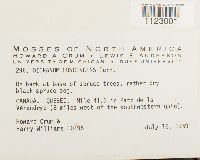 1123001
MOSSES OF NORTH AMERICA
HOWARD A CRUM • LEWIS E ANDERSON
UNIVERSITY OF MICHIGAN • DUKE UNIVERSITY
290. DICRANUM FUSCESCENS Turn.
On bark at base of spruce trees, rather dry
black spruce bog.
CANADA. QUEBEC. Mile 41.5 in Parc de la
Verendrye (8 miles west of the southeastern gate).
Howard Crum &
Harry Williams July 15, 1959